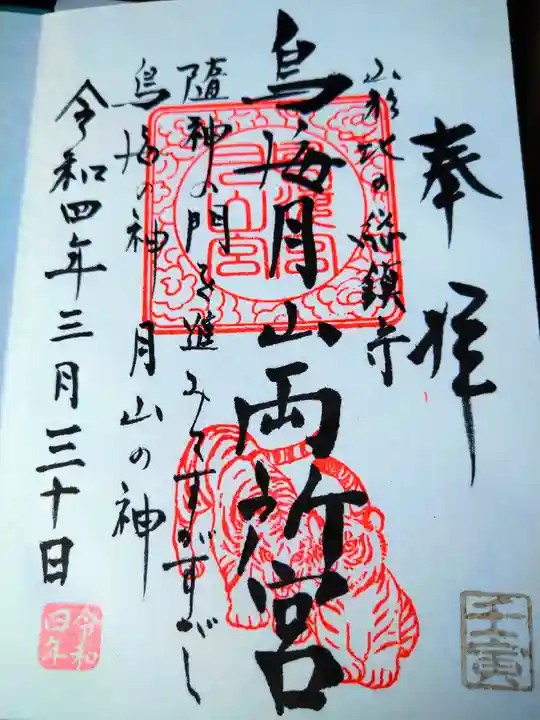 奉拝
山形北の総鎮守
鳥海月山両所宮
随神の門を進みてすがすがし
鳥海の神 月山の神
令和四年三月三十日
令和
四年
壬寅